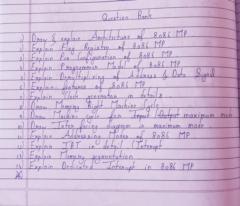 Question Bank
1) Draw & explain Architecture of 8086 MP
2) Explain Flag Register of 8086 MP
3) Explain Pin Configuration of 8086 MP
4) Explain Programmin Model of 8086 MP
5) Explain Demultiplexing of Address & Data Signal
6) features of 8086 MP
7) Explain Clock generation in details
8) Draw Memory Machine Cycle
9) Draw Machine cycle for Input maximum min
10) Draw Interfacing diagram in maximum mode
11) Explain Addressing Modes of 8086 MP
12) Explain in detail Interrupt
13) Explain Memory segmentation
14) Explain Dedicated Interrupt in 8086 MP